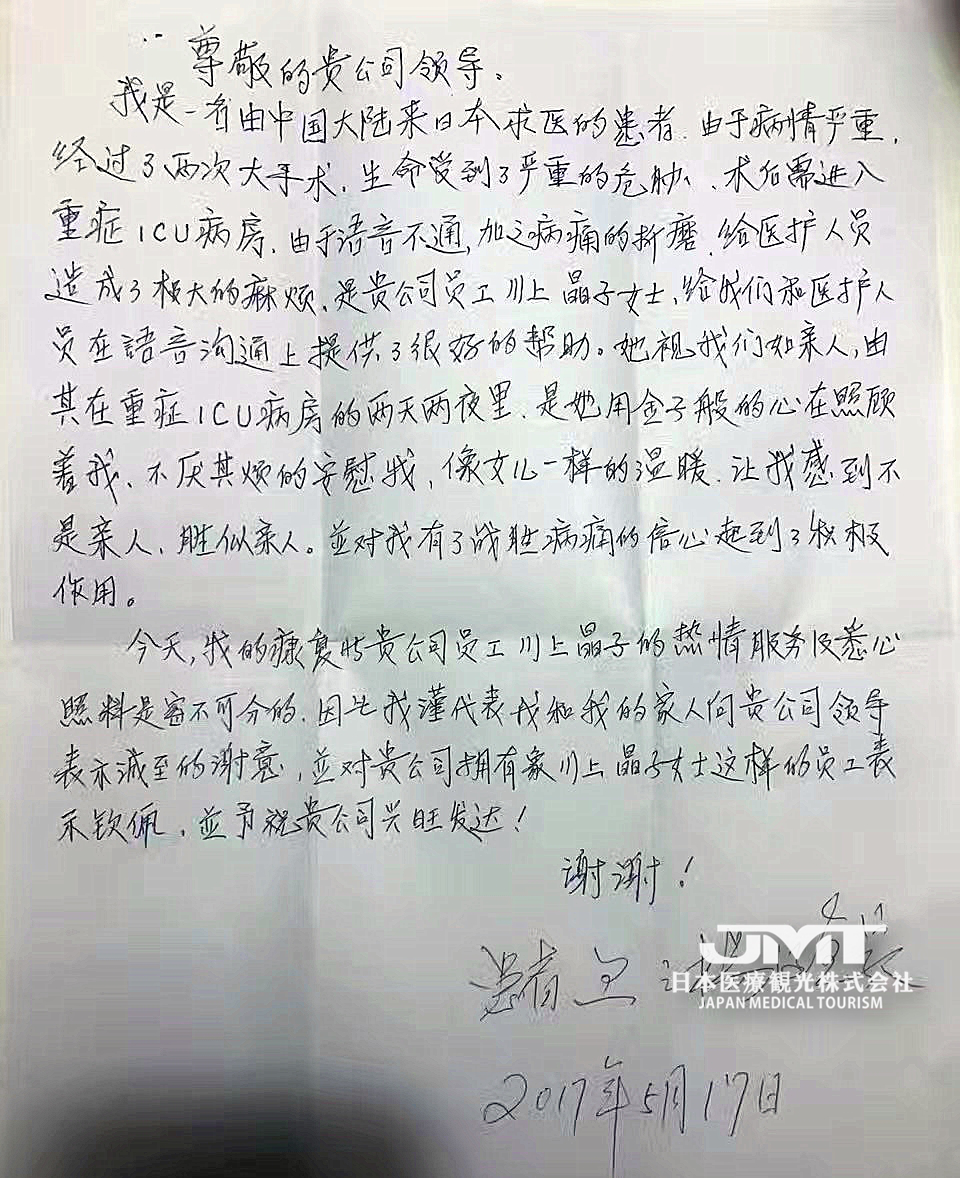 尊敬的贵公司领导。
我是一名由中国大陆来日本求医的患者.由于病情严重,
经过了两次大手术.生命受到了严重的危胁、术后需进入
重症ICU病房.由于语音不通,加之病痛的折磨.给医护人员
造成了极大的麻烦.是贵公司员工川上晶子女士、给我们和医护人
员在語音沟通上提供了很好的帮助。她视我们如亲人,由
其在重症ICU病房的两天两夜里、是她用金子般的心在照顾
着我、不厌其烦的安慰我,像女儿一样的温暖.让我感到不
是亲人、胜似亲人。並对我有了战胜病痛的信心起到了积极
作用。
今天,我的康复与贵公司员工川上晶子的热情服务及悉心
照料是密不可分的.因此我谨代表我和我的家人向贵公司领导
表示诚至的谢意,並对贵公司拥有象川上晶子女士这样的员工表
示钦佩,並予祝贵公司兴旺发达!
谢谢!
患者
JMT
日本医療観光株式会社
JAPAN MEDICAL TOURISM
2017年5月17日